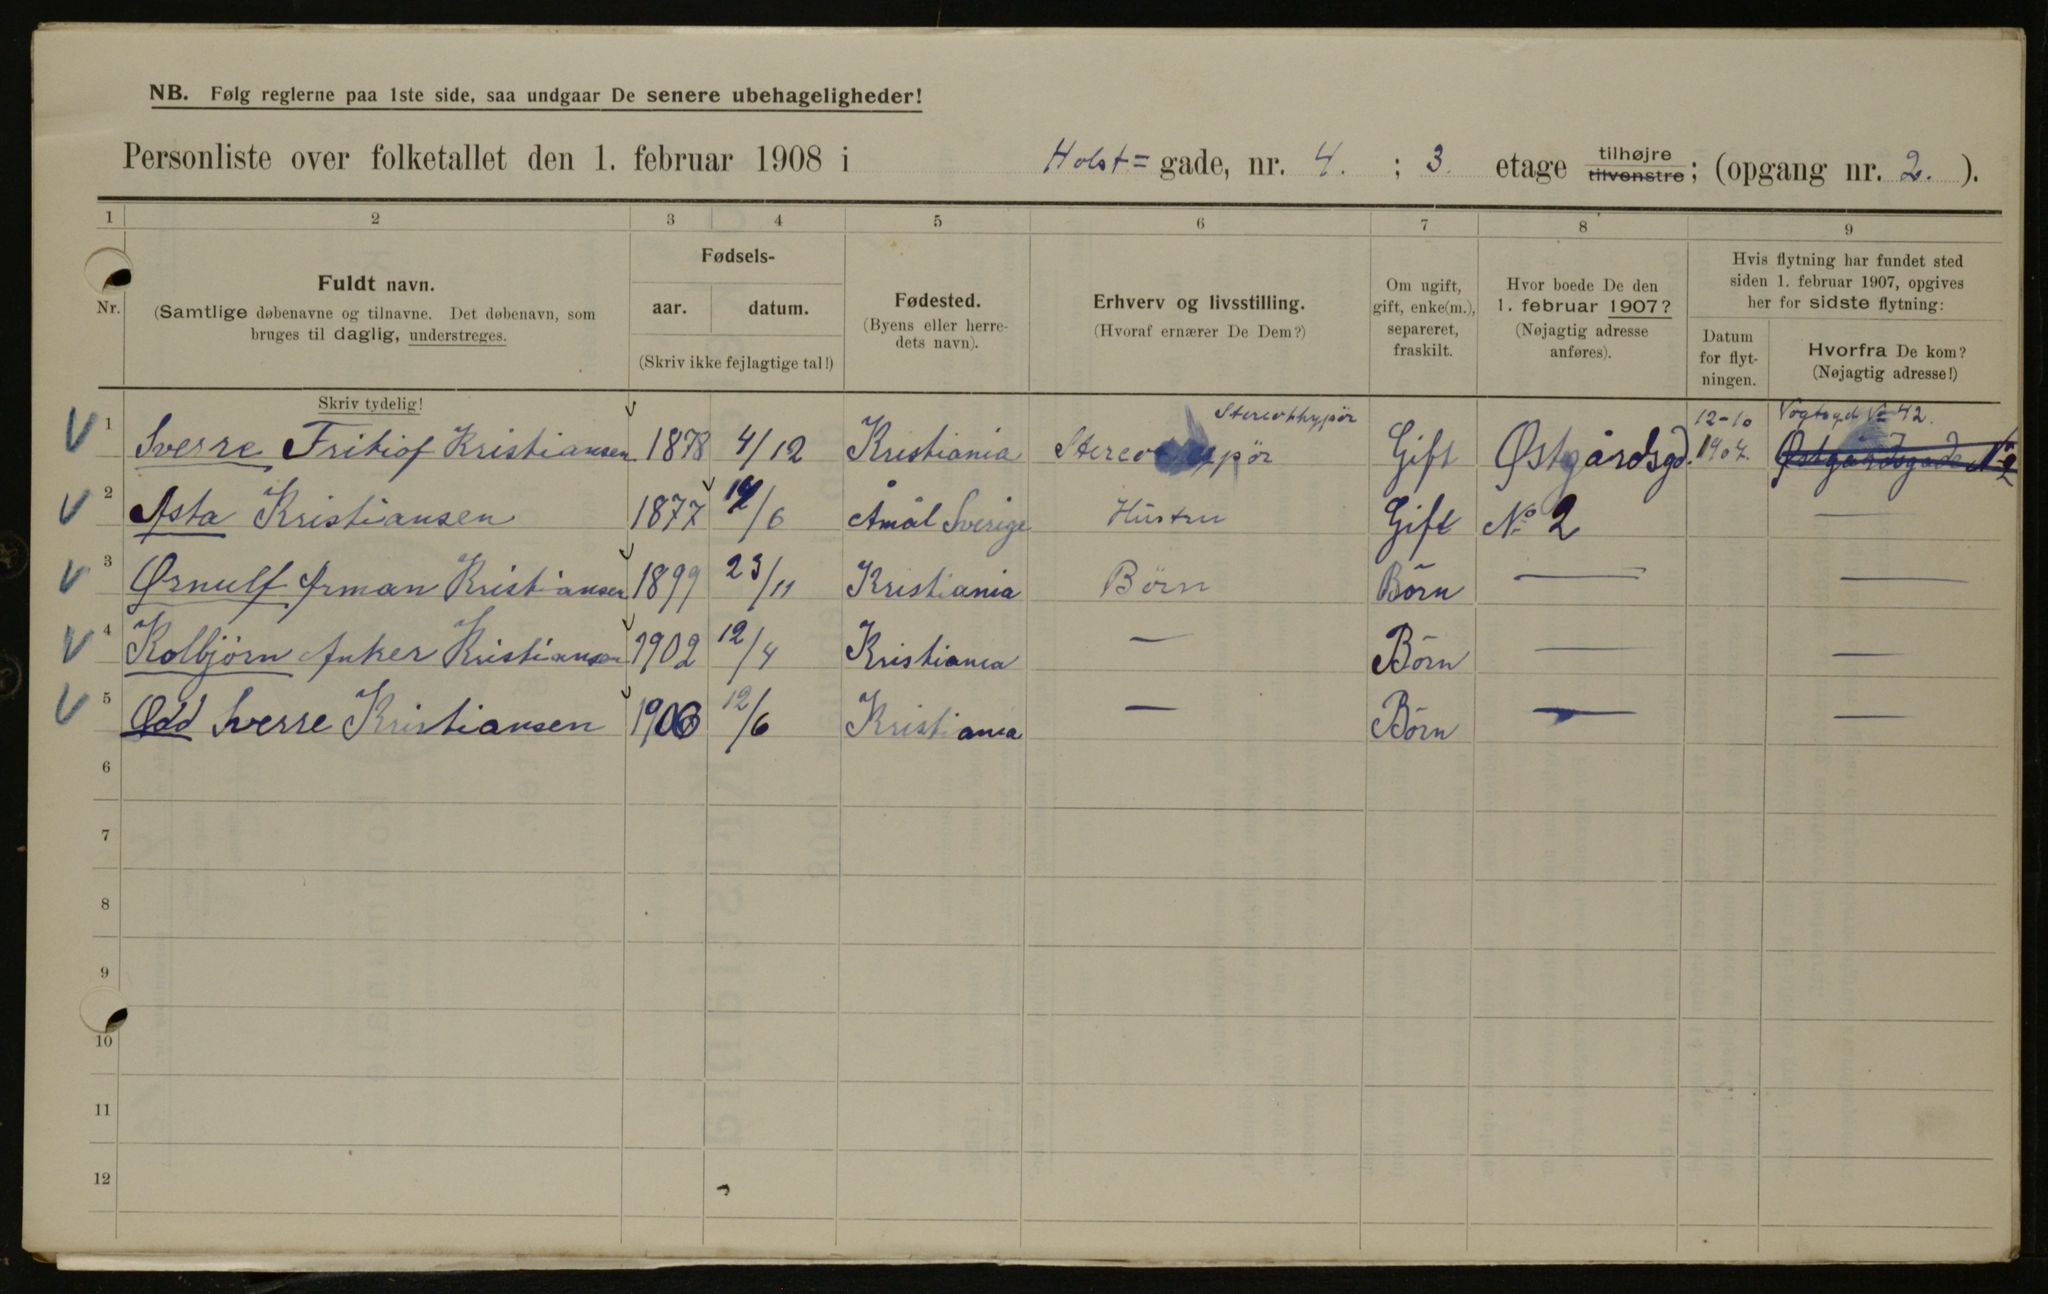 NB. Følg reglerne paa 1ste side, saa undgaar De senere ubehageligheder!
Personliste over folketallet den 1. februar 1908 i Holst= gade, nr. 4. ; 3. etage tilhøjre tilvenstre; (opgang nr. 2. ).
1 2 3 4 5 6 7 8 9
Nr.
Fuldt navn.
(Samtlige døbenavne og tilnavne. Det døbenavn, som
bruges til daglig, understreges.
Skriv tydelig!
Fødsels-
aar. datum.
(Skriv ikke fejlagtige tal!)
Fødested.
(Byens eller herre-
dets navn).
Erhverv og livsstilling.
(Hvoraf ernærer De Dem?)
Om ugift,
gift, enke(m.),
separeret,
fraskilt.
Hvor boede De den
1. februar 1907?
(Nøjagtig adresse
anføres).
Hvis flytning har fundet sted
siden 1. februar 1907, opgives
her for sidste flytning:
Datum
for flyt-
ningen.
Hvorfra De kom?
(Nøjagtig adresse!)
Stereothypør 12-10 Vogtsgd No 42.
1 Sverre Fritiof Kristiansen 1878 4/12 Kristiania Gift Østgårdsgd. 1907. Østgårdsgade No 2
2 Asta Kristiansen 1877 14/6 Åmål Sverige Hustru Gift No 2 —
3 Ørnulf Arman Kristiansen 1899 23/11 Kristiania Børn Børn — —
4 Kolbjørn Anker Kristiansen 1902 12/4 Kristiania — Børn — —
5 Odd Sverre Kristiansen 1906 12/6 Kristiania — Børn — —
6
7
8
9
10
11
12